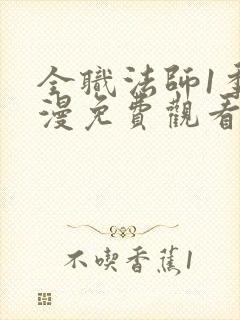 全職法師1季
漫免費觀看
不喫香蕉1